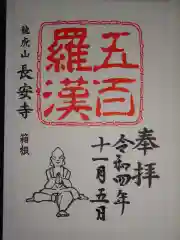 奉拝
令和四年
十一月五日
五百
羅漢
龍虎山
長安寺
箱根